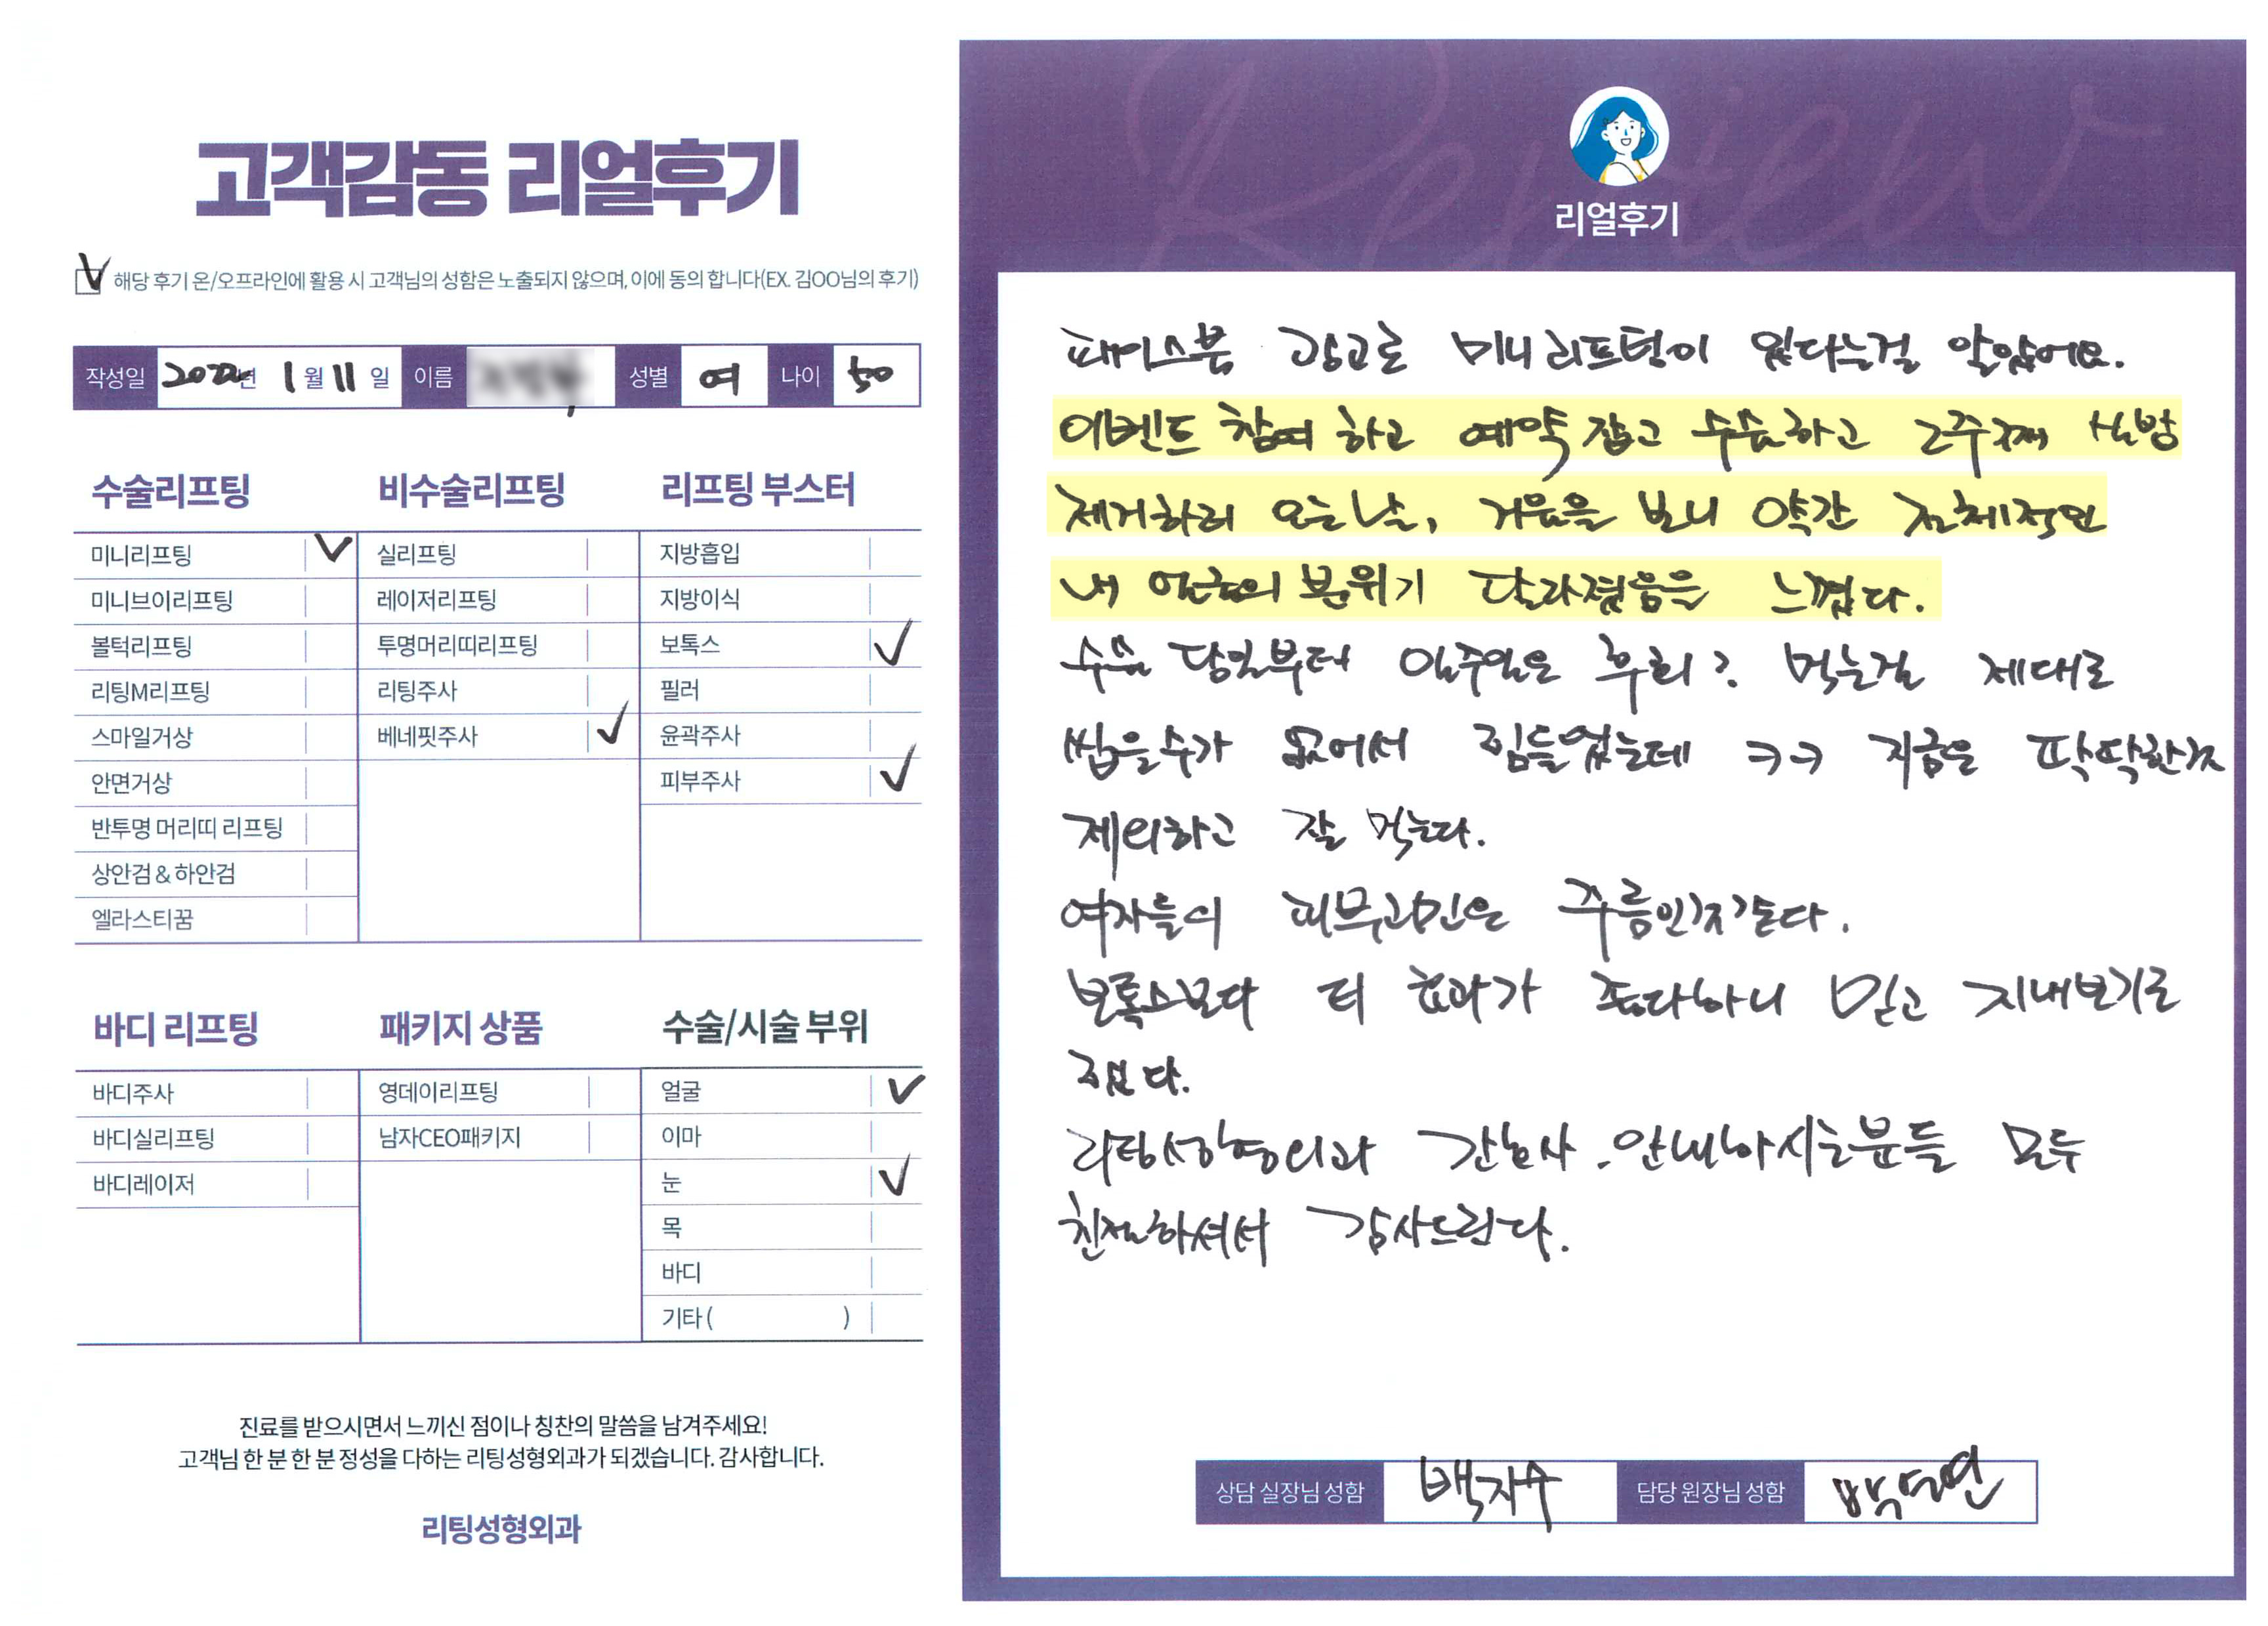 고객감동 리얼후기
V 해당 후기 온/오프라인에 활용 시 고객님의 성함은 노출되지 않으며, 이에 동의 합니다(EX. 김OO님의 후기)
작성일 2022년 1월 11일 이름 성별 여 나이 50
수술리프팅
미니리프팅 V
미니브이리프팅
볼턱리프팅
리팅M리프팅
스마일거상
안면거상
반투명 머리띠 리프팅
상안검 & 하안검
엘라스티꿈
비수술리프팅
실리프팅
레이저리프팅
투명머리띠리프팅
리팅주사
베네핏주사 V
리프팅 부스터
지방흡입
지방이식
보톡스 V
필러
윤곽주사
피부주사 V
바디 리프팅
바디주사
바디실리프팅
바디레이저
패키지 상품
영데이리프팅
남자CEO패키지
수술/시술 부위
얼굴 V
이마
눈 V
목
바디
기타 ( )
진료를 받으시면서 느끼신 점이나 칭찬의 말씀을 남겨주세요!
고객님 한 분 한 분 정성을 다하는 리팅성형외과가 되겠습니다. 감사합니다.
리팅성형외과
Review
리얼후기
페이스북 광고로 미니리프팅이 있다는걸 알았어요.
이벤트 참여 하고 예약 잡고 수술하고 2주째 실밥
제거하러 오는날, 거울을 보니 약간 전체적인
내 얼굴의 분위기 달라졌음을 느꼈다.
수술 당일부터 일주일은 후회? 먹는걸 제대로
씹을수가 없어서 힘들었는데 ㅋㅋ 지금은 딱딱한것
제외하고 잘 먹는다.
여자들의 피부고민은 주름인것같다.
보톡스보다 더 효과가 좋다하니 믿고 지내보기로
했다.
리팅성형외과 간호사. 안내하시는분들 모두
친절하셔서 감사드린다.
상담 실장님 성함 백지수 담당 원장님 성함